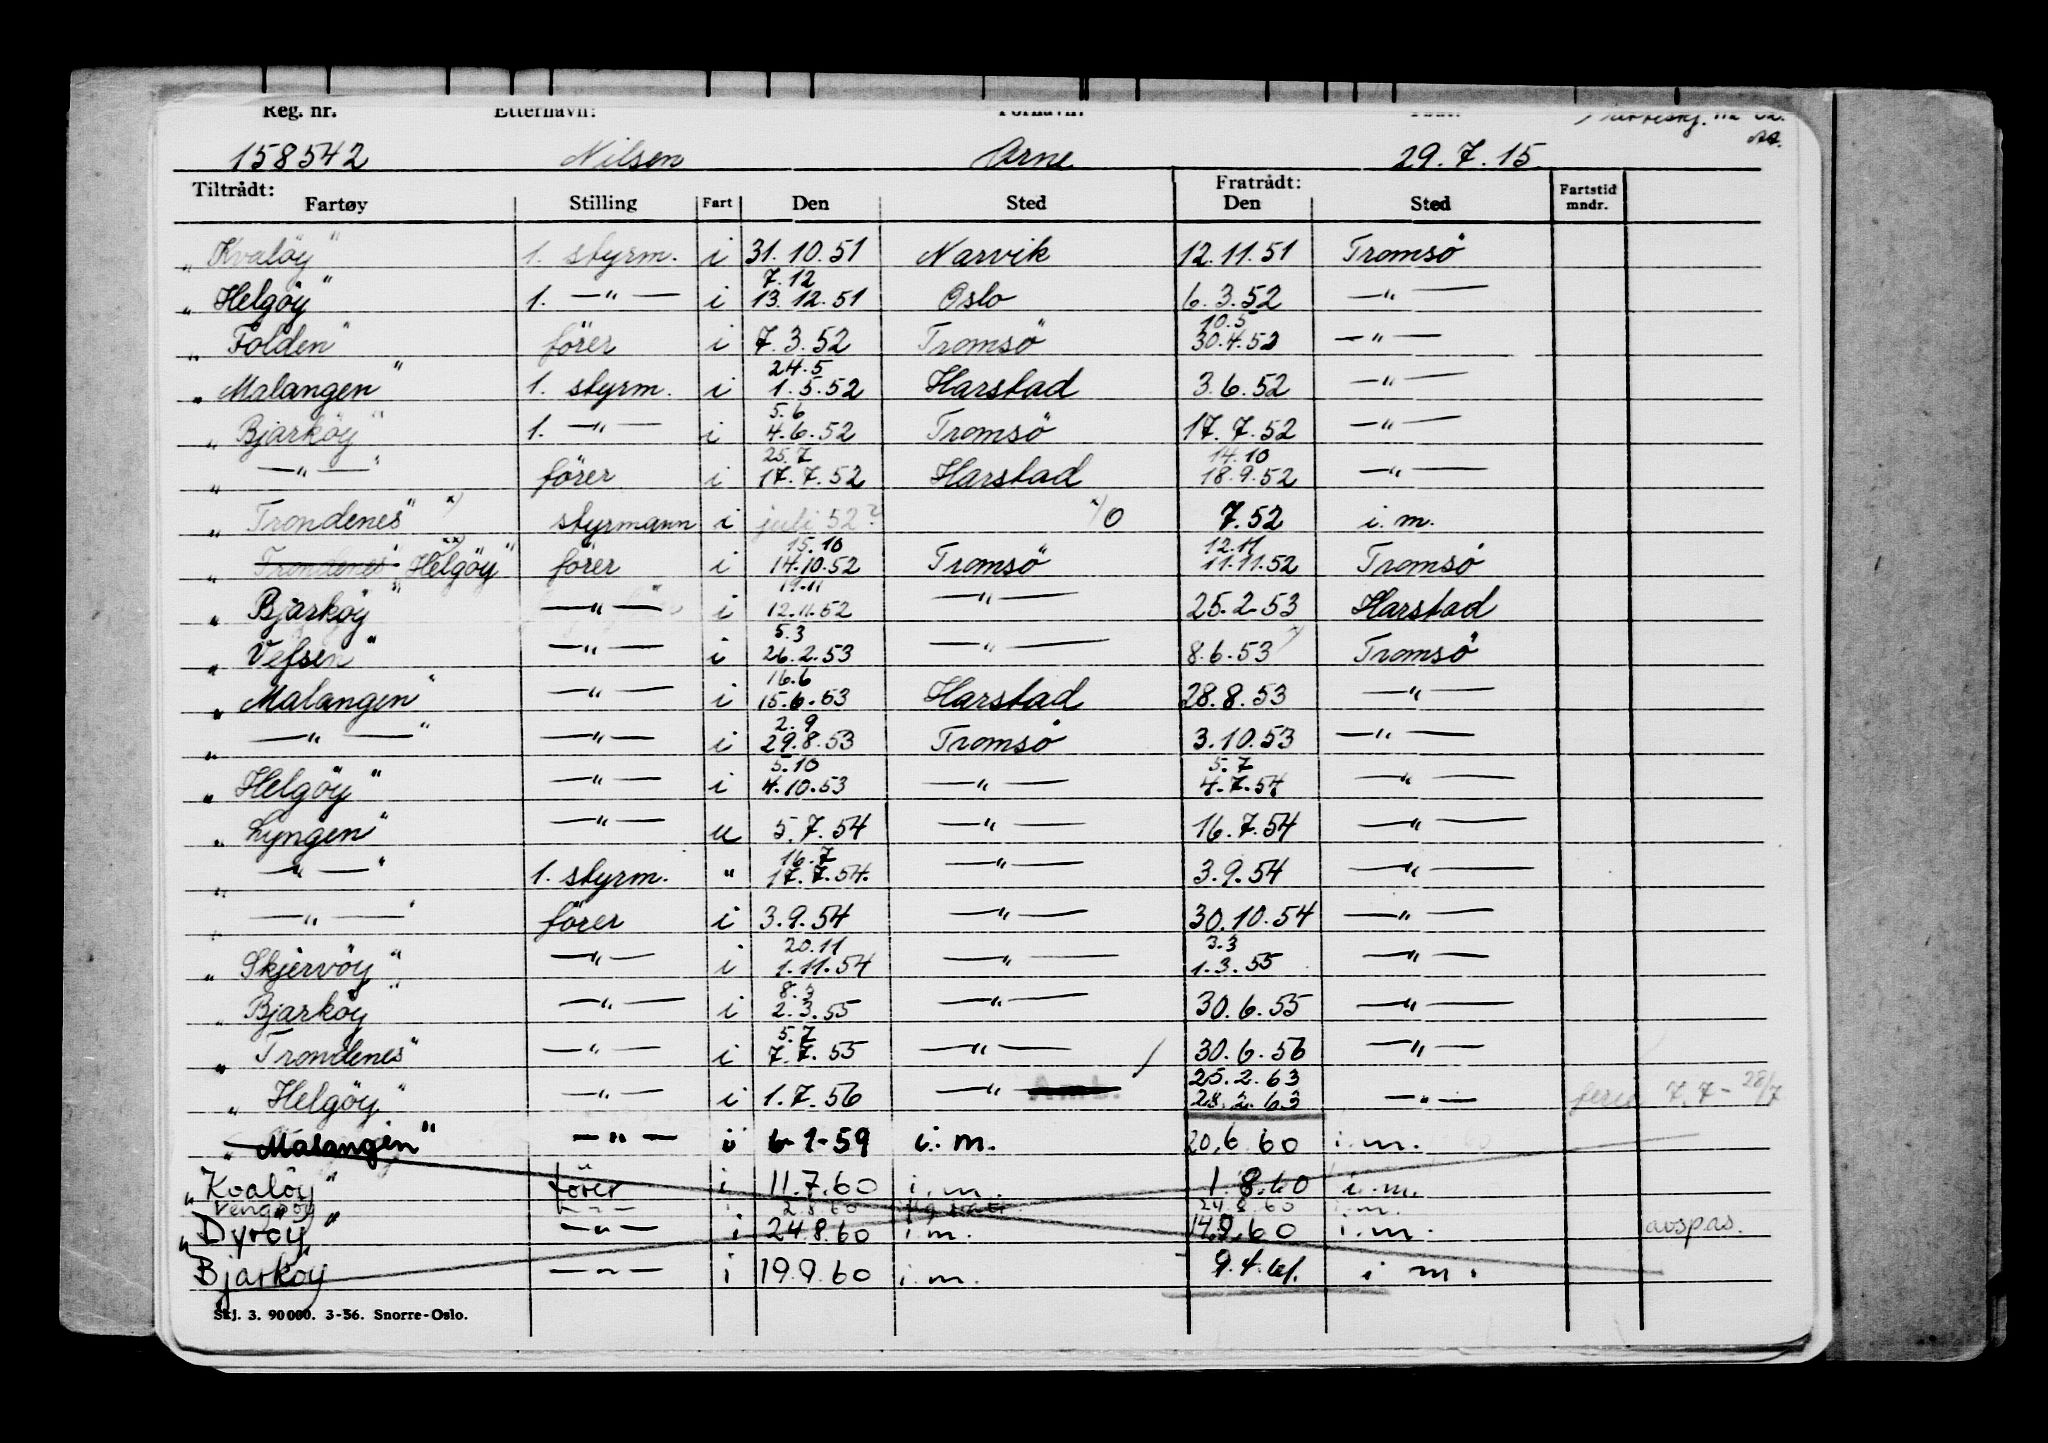 Reg. nr. Etternavn: Fornavn:
158542 Nilsen Arne 29.7.15.
Tiltrådt: Fratrådt:
Fartøy Stilling Fart Den Sted Den Sted Fartstid mndr.
„Kvalöy" 1. styrm. i 31.10.51 Narvik 12.11.51 Tromsö
7.12
„Helgöy" 1. —"— i 13.12.51 Oslo 6.3.52 —"—
10.5
„Folden" förer i 7.3.52 Tromsö 30.4.52 —"—
24.5
„Malangen" 1. styrm. i 1.5.52 Harstad 3.6.52 —"—
5.6
„Bjarköy" 1. —"— i 4.6.52 Tromsö 17.7.52 —"—
25.7 14.10
„—"—" förer i 17.7.52 Harstad 18.9.52 —"—
„Trondenes" x) styrmann i juli 52? x) O 7.52 i.m.
15.10 12.11
„Trondenes Helgöy" xx) förer i 14.10.52 Tromsö 11.11.52 Tromsö
19.11
„Bjarköy" —"— i 12.11.52 —"— 25.2.53 Harstad
5.3
„Vefsen" —"— i 26.2.53 —"— 8.6.53 Tromsö
16.6
„Malangen" —"— i 15.6.53 Harstad 28.8.53 —"—
2.9
„—"—" —"— i 29.8.53 Tromsö 3.10.53 —"—
5.10 5.7
„Helgöy" —"— i 4.10.53 —"— 4.7.54 —"—
„Lyngen" —"— u 5.7.54 —"— 16.7.54 —"—
16.7
„—"—" 1. styrm. " 17.7.54. —"— 3.9.54 —"—
„—"—" förer i 3.9.54 —"— 30.10.54 —"—
20.11 3.3
„Skjervöy" —"— i 1.11.54 —"— 1.3.55 —"—
8.3
„Bjarköy" —"— i 2.3.55 —"— 30.6.55 —"—
5.7
„Trondenes" —"— i 7.7.55 —"— 30.6.56 —"—
25.2.63
„Helgöy" —"— i 1.7.56 —"— 28.2.63 —"— 7.7 - 28/7
„Malangen" —"— i 6-1-59 i.m. 20.6.60 i.m.
„Kvalöy" förer i 11.7.60 i.m. 1.8.60 i.m.
2.8.60 24.8.60 i.m.
„Dyröy" —"— i 24.8.60 i.m. 14.9.60 i.m. avspas.
Bjarköy" —"— i 19.9.60 i.m. 9.4.61. i m.
Skj. 3. 90 000. 3-56. Snorre-Oslo.